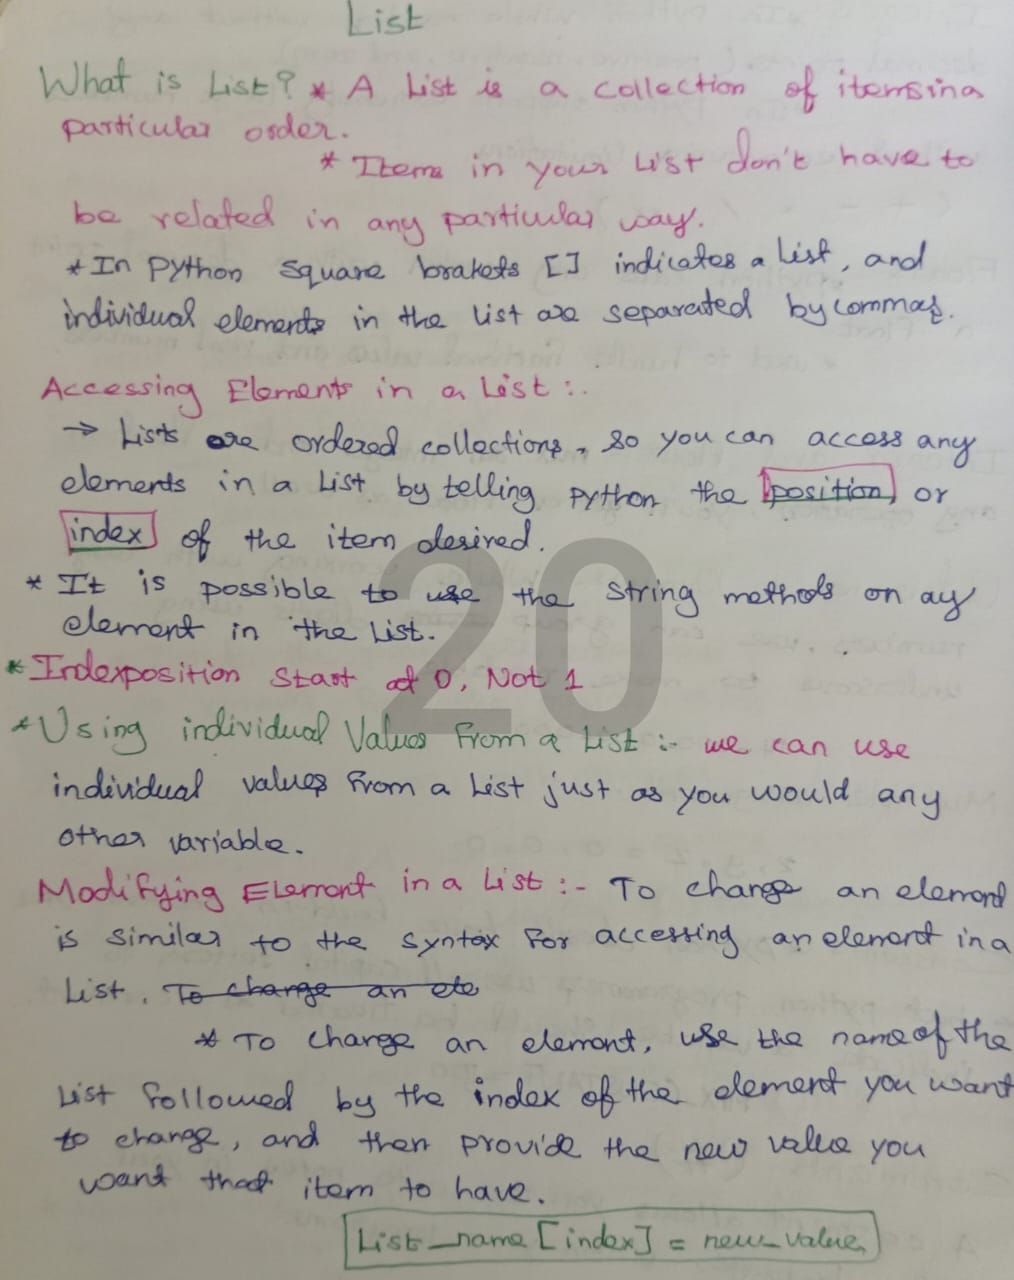 List
What is List? * A List is a collection of items in a
particular order.
* Items in your List don't have to
be related in any particular way.
* In Python square brakets [] indicates a List, and
individual elements in the list are separated by commas.
Accessing Elements in a List :-
→ Lists are ordered collections, so you can access any
elements in a list by telling Python the position, or
index of the item desired.
* It is possible to use the string methods on ay
element in the List.
* Index position Start at 0, Not 1
* Using individual Values From a List :- we can use
individual values From a List just as you would any
other variable.
Modifying Element in a List :- To change an element
is similar to the syntax For accessing an element in a
List. To change an ele
* To change an element, use the name of the
List followed by the index of the element you want
to change, and then provide the new value you
want that item to have.
List_name [index] = new_value
20